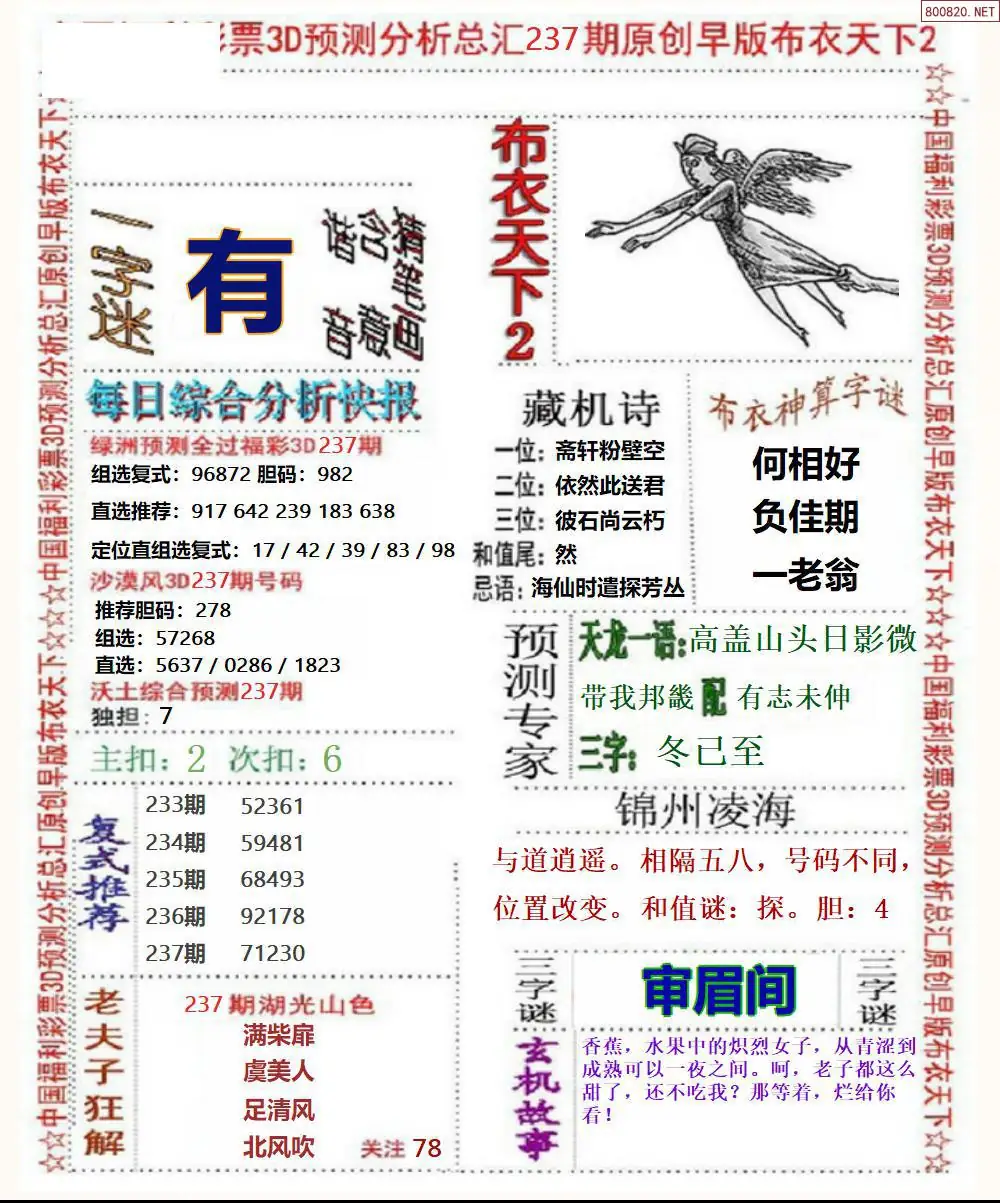 800820.NET
彩票3D预测分析总汇237期原创早版布衣天下2
☆☆中国福利彩票3D预测分析总汇原创早版布衣天下☆☆中国福利彩票3D预测分析总汇原创早版布衣天下☆
一字迷
有
猜笔画
含意
谐音
布衣天下2
每日综合分析快报
绿洲预测全过福彩3D237期
组选复式：96872 胆码：982
直选推荐：917 642 239 183 638
定位直组选复式：17 / 42 / 39 / 83 / 98
沙漠风3D237期号码
推荐胆码：278
组选：57268
直选：5637 / 0286 / 1823
沃土综合预测237期
独担：7
主扣：2 次扣：6
复式推荐
233期 52361
234期 59481
235期 68493
236期 92178
237期 71230
老夫子狂解
237期湖光山色
满柴扉
虞美人
足清风
北风吹 关注 78
藏机诗
一位：斋轩粉壁空
二位：依然此送君
三位：彼石尚云朽
和值尾：然
忌语：海仙时遣探芳丛
布衣神算字谜
何相好
负佳期
一老翁
预测专家
天龙一语：高盖山头日影微
带我邦畿 配 有志未伸
三字：冬已至
锦州凌海
与道逍遥。相隔五八，号码不同，
位置改变。和值谜：探。胆：4
三字谜
审眉间
三字谜
玄机故事
香蕉，水果中的炽烈女子，从青涩到
成熟可以一夜之间。呵，老子都这么
甜了，还不吃我？那等着，烂给你
看！
☆☆中国福利彩票3D预测分析总汇原创早版布衣天下☆☆☆中国福利彩票3D预测分析总汇原创早版布衣天下☆☆